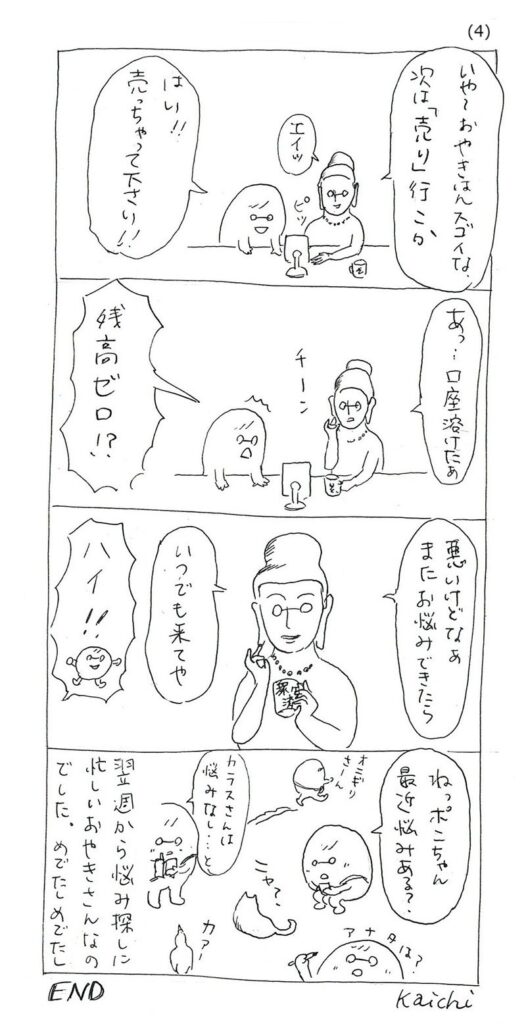 (4)
いや〜おやきはんスゴイな、
次は「売り」行こか
エイッ
ピッ
はい!!
売っちゃって下さい!!
あっ…口座溶けたぁ
チーン
残高ゼロ!?
悪いけどなぁ
またお悩みできたら
いつでも来てや
ハイ!!
ねっポニちゃん
最近悩みある?
オニギリ
さーん
カラスさんは
悩みなし…と
ニャ?
カァー
アナタは?
翌週から悩み探しに
忙しいおやきさんなの
でした。めでたしめでたし
END
Kaichi